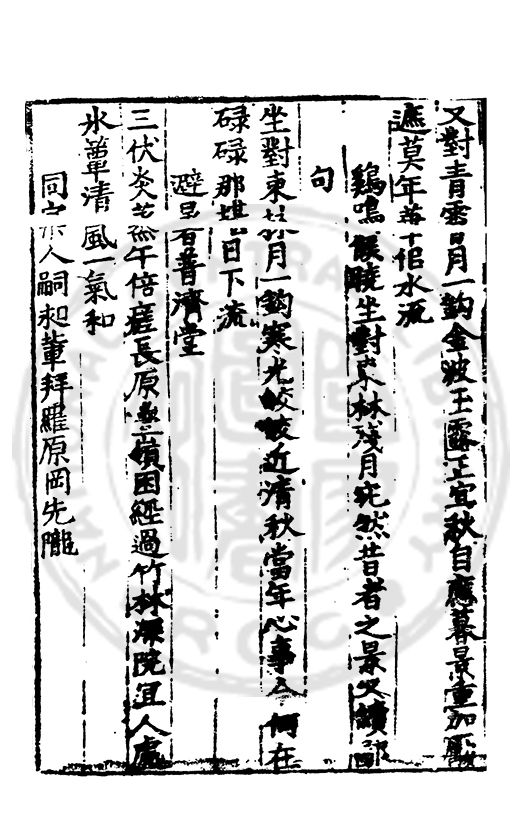 又對青雲月一鈎金波玉露正宜秋自應暮景重加
遮莫年華水流
鷄鳴候曉坐對東林殘月宛然昔者之景又續
句
坐對東林月一鈎寒光皎皎近清秋當年心事今何在
碌碌那堪日下流
避暑普濟堂
三伏炎蒸午倍長原嶺困經過竹林深院宜人處
氷簟清風一氣和
同宗人嗣昶輩拜羅原岡先隴